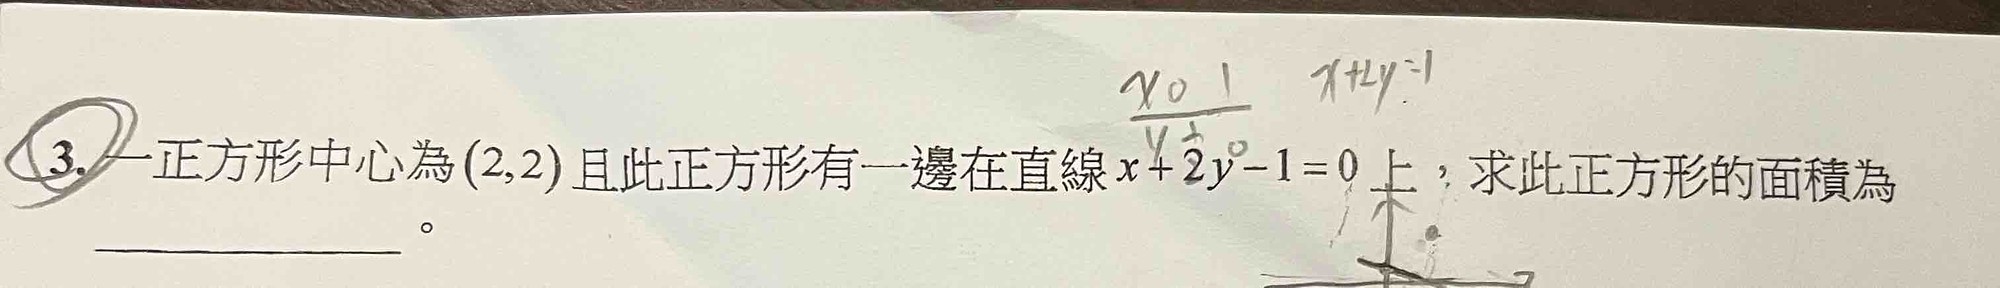 x 0 1 x+2y=1
y ½ 0
3. 一正方形中心為(2,2)且此正方形有一邊在直線x+2y-1=0上，求此正方形的面積為
________。